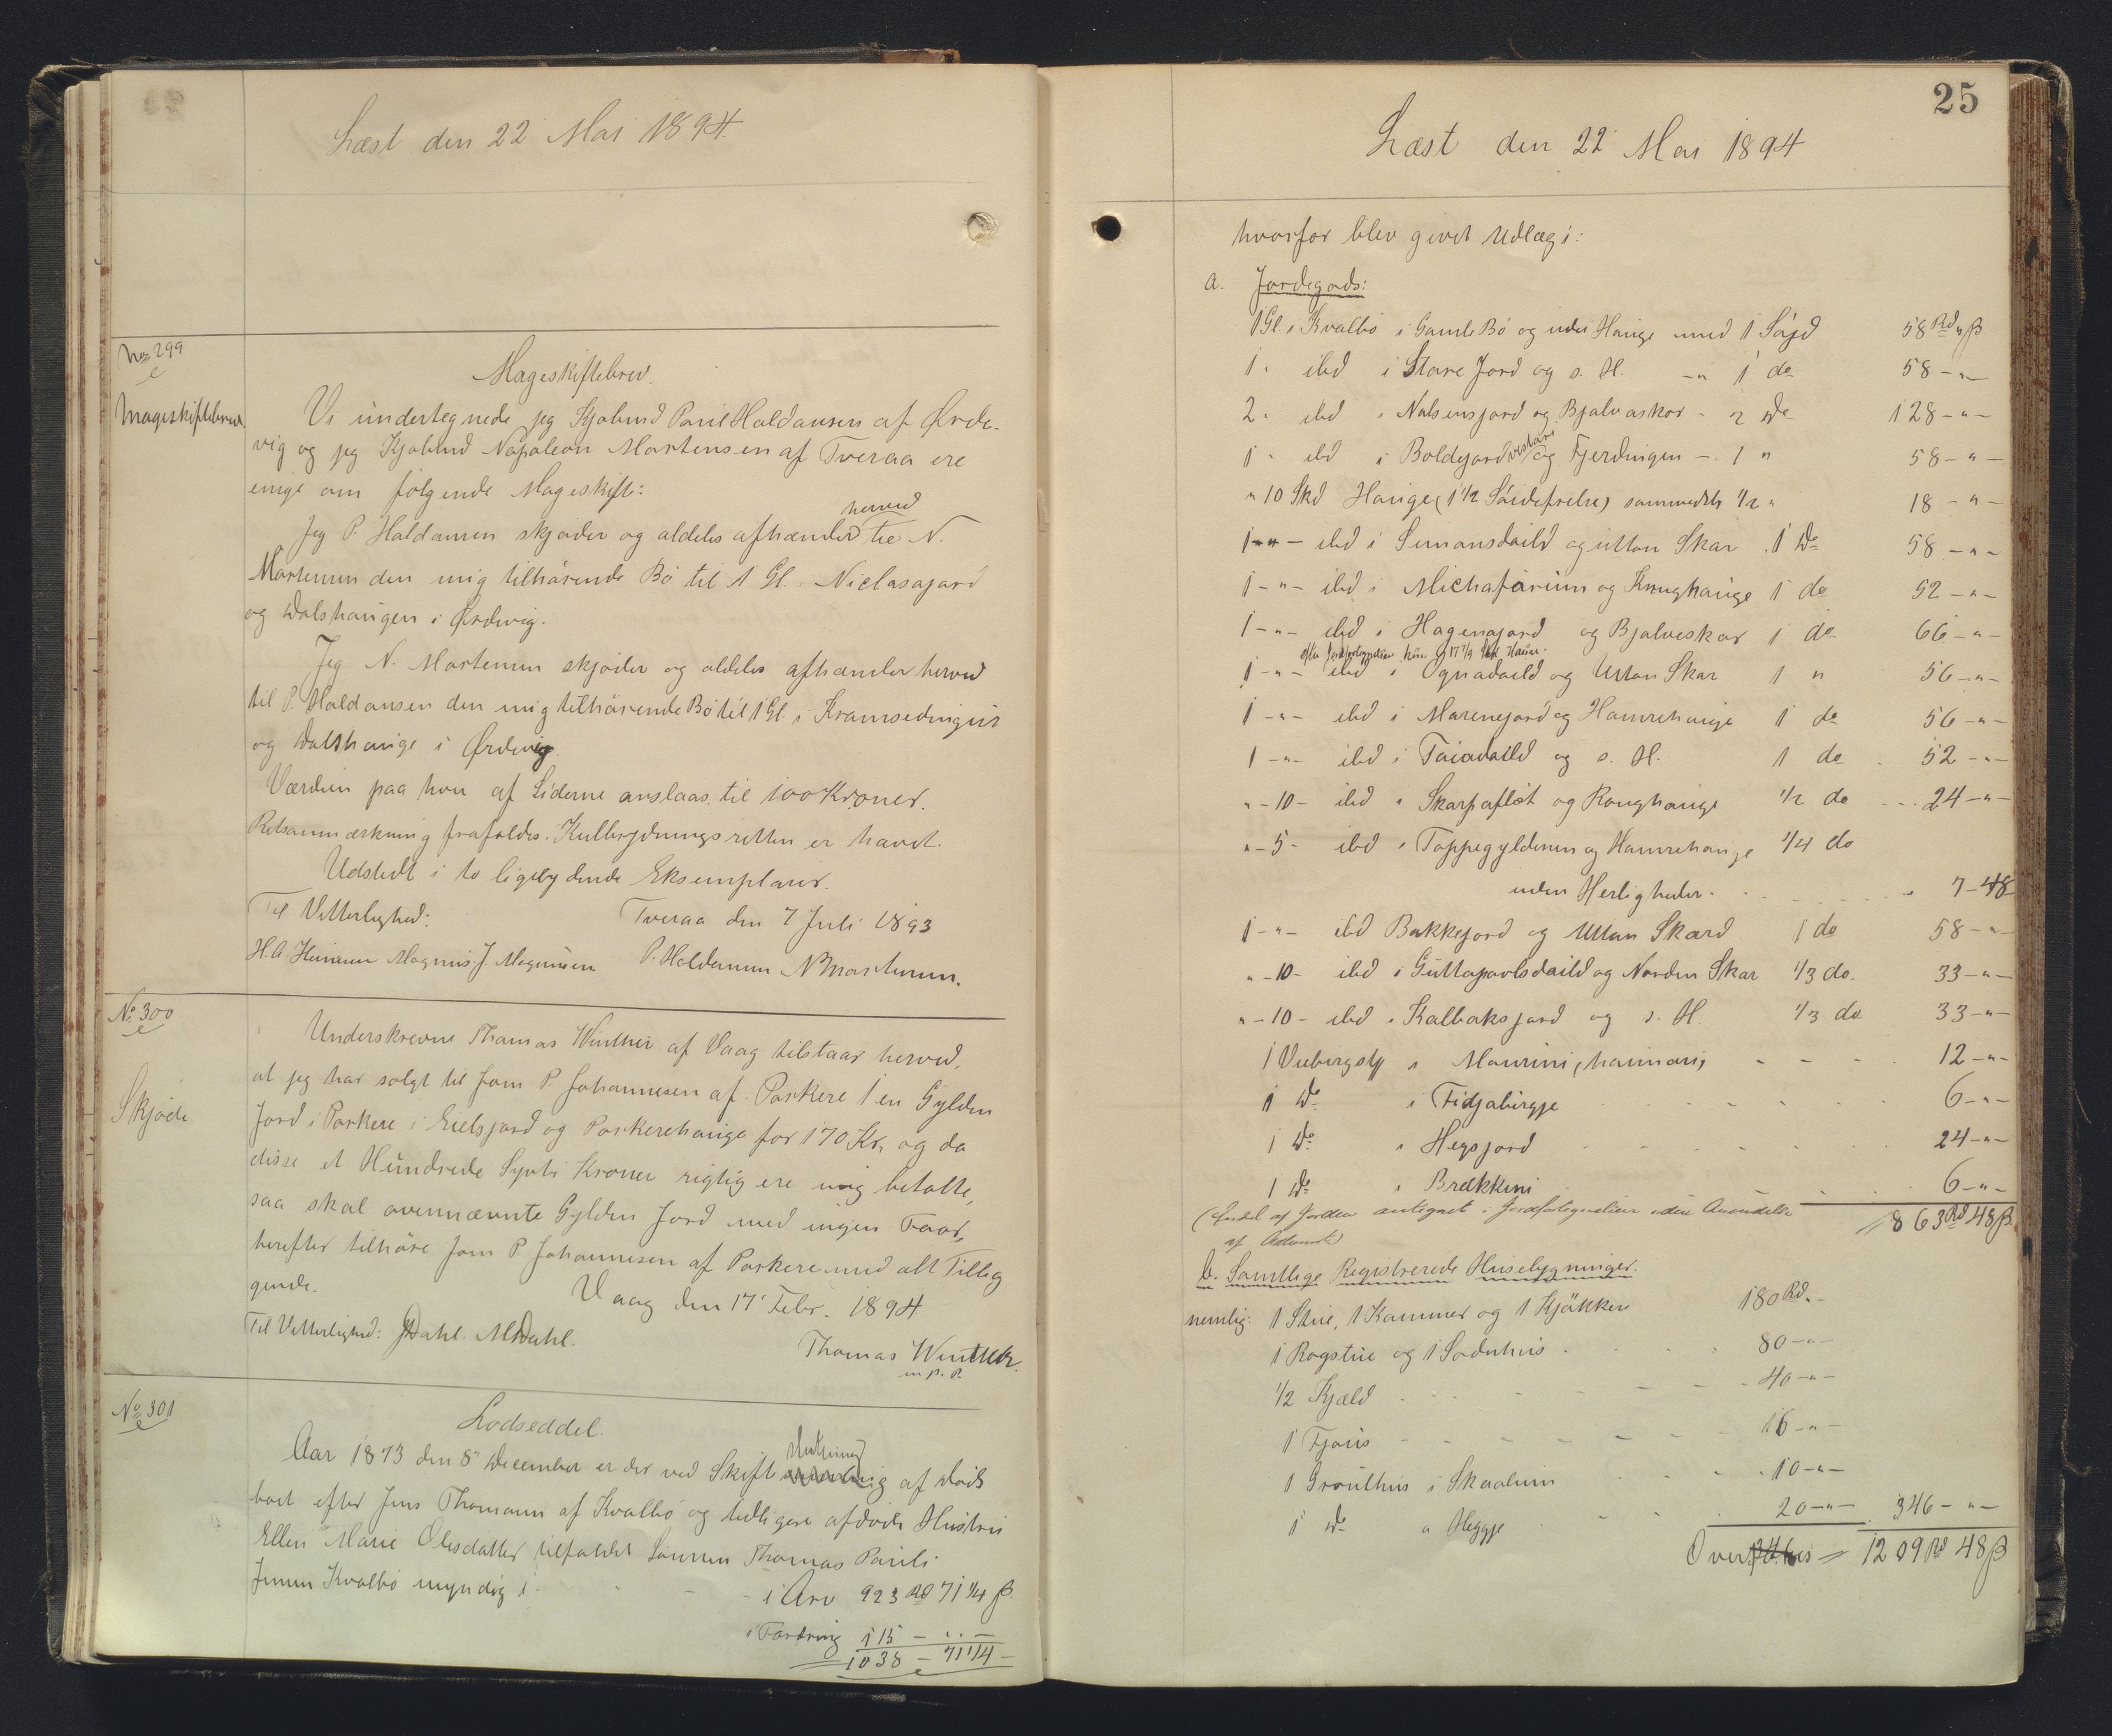 Læst den 22 Mai 1894.
No 299
Mageskiftebrev.
Mageskiftebrev.
Vi undertegnede jeg Kjøbmd Poul Haldansen af Ørde-
vig og jeg Kjøbmd Napoleon Mortensen af Tveraa ere
enige om følgende Mageskifte:
Jeg P. Haldansen skjøder og aldeles afhænder herved til N.
Mortensen den mig tilhørende Bø til 1 Gl. i Niclasajord
og Dalshaugen i Ørdevig.
Jeg N. Mortensen skjøder og aldeles afhænder herved
til P. Haldansen den mig tilhørende Bø til 1 Gl. i Kramsedingur
og Dalshauge i Ørdevig
Værdien paa hver af Siderne anslaas til 100 Kroner.
Retsanmærkning frafaldes. Kulbrydningsretten er hævet.
Udstedt i to ligelydende Eksemplarer.
Til Vitterlighed: Tveraa den 7 Juli 1893
H.A. Heinesen Magnus J. Magnussen P. Haldansen N Mortensen.
No 300
Skjøde
Underskrevne Thomas Winther af Vaag tilstaar herved,
at jeg har solgt til Joen P. Johannesen af Porkere 1 en Gylden
Jord i Porkere i Eielsjord og Porkerehauge for 170 Kr, og da
disse et Hundrede Syvti Kroner rigtig ere mig betalte,
saa skal ovennævnte Gylden Jord med ingen Faar,
herefter tilhøre Joen P Johannesen af Porkere med alt Tillig
gende.
Vaag den 17' Febr. 1894
Til Vitterlighed: JDahl. MDahl.
Thomas Winther.
m. p. P.
No 301
Lodseddel.
Aar 1873 den 8' December er der ved Skifteslutning af Døds
boet efter Jens Thomasen af Kvalbø og tidligere afdøde Hustru
Ellen Marie Olesdatter tilfaldet Sønnen Thomas Pauli
Jensen Kvalbø myndig i - - - i Arv 923 Rd 71 1/4 ß
i Fordring 115 - .. -
1038 - 71 1/4 -
25
Læst den 22 Mai 1894
hvorfor blev givet Udlæg i:
a. Jordegods:
1 Gl. i Kvalbø i Gamle Bø og uden Hauge med 1 Søjd 58 Rd " ß
1 " ibd i Store Jord og s. H. - " 1 do 58 - " -
2 " ibd i Nolsensjord og Bjalvaskor - 2 Do 128 - " -
1 " ibd i Boldejord vestari og Fjerdingen - . 1 " 58 - " -
" 10 Skd Hauge (1 1/2 Søidefrelse) sammesteds 1/2 " 18 - " -
1 - " - ibd i Simonsdaild og uttan Skar 1 Do 58 - " -
1 - " - ibd i Michafarum og Krughauge 1 do 52 - " -
1 - " - ibd i Hagenajord og Bjalveskor 1 do 66 - " -
1 - " - ibd i Ognadaild og Uttan Skar 1 " 56 - " -
1 - " - ibd i Marenejord og Hamrehauge 1 do 56 - " -
1 - " - ibd i Taiadaild og s. H. 1 do 52 - " -
" - 10 - ibd i Skarpaflot og Roughauge 1/2 do 24 - " -
" - 5 - ibd i Toppegyldenen og Hamrehauge 1/4 do
uden Herligheder. 7 - 48
1 - " - ibd Bakkejord og Uttan Skard 1 do 58 - " -
" - 10 - ibd i Guttapavlsdaild og Norden Skar 1/3 do. 33 - " -
" - 10 - ibd i Kalbaksjord og s. H. 1/3 do 33 - " -
1 Veebergstk i Maurini, haunari, 12 - " -
1 Do i Fidjabirgje 6 - " -
1 Do i Hegsjord 24 - " -
1 Do i Brekkuni 6 - " -
863 Rd 48 ß
b. Samtlige Registrerede Husebygninger.
nemlig: 1 Stue, 1 Kammer og 1 Kjøkken 180 Rd " -
1 Rogstue og 1 Sodnhus 80 - " -
1/2 Kjeld 40 - " -
1 Fjøs 16 - " -
1 Grouthus i Skaalum 10 - " -
1 do a Heggje 20 - " - 346 - " -
Overføres 1209 Rd 48 ß